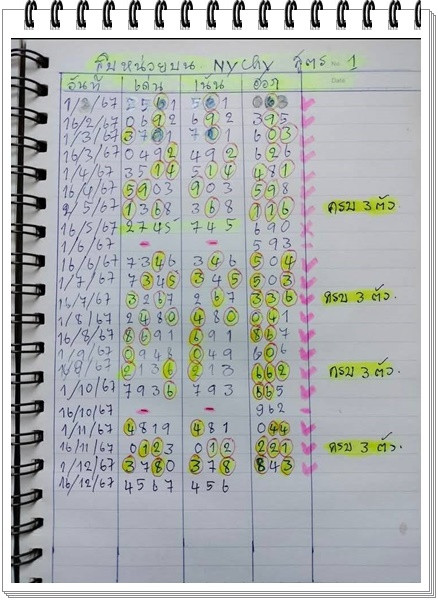 สิบหน่วยบน NYchy สูตร No. 1
วันที่ เด่น เน้น ออก Date
1/2/67 2561 561 063
16/2/67 0692 692 395
1/3/67 3701 701 603
16/3/67 0492 492 626
1/4/67 3514 514 481
16/4/67 5903 903 598
2/5/67 1368 368 116 ครบ 3 ตัว
16/5/67 2745 745 690
1/6/67 - - 593
16/6/67 7346 346 504
1/7/67 7345 345 503
16/7/67 3267 267 336 ครบ 3 ตัว.
1/8/67 2480 480 041
16/8/67 8691 691 867
1/9/67 0948 049 606
2136 213 662 ครบ 3 ตัว.
1/10/67 7936 793 665
16/10/67 - - 962
1/11/67 4819 481 044
16/11/67 0123 012 221 ครบ 3 ตัว.
1/12/67 3780 378 843
16/12/67 4567 456